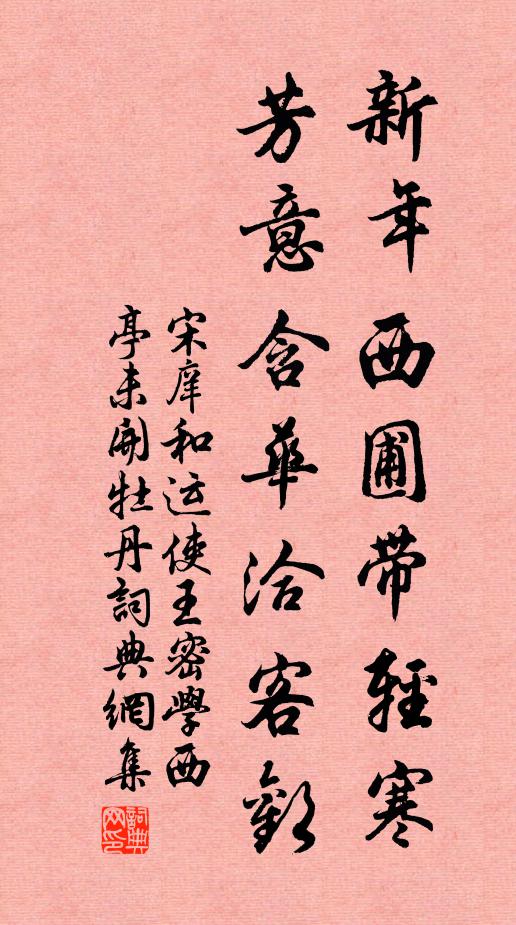 新年西圃帶輕寒
芳意含華洽客歡
宋庠和运使王密學西
亭未開牡丹詞典網集
詞典网印